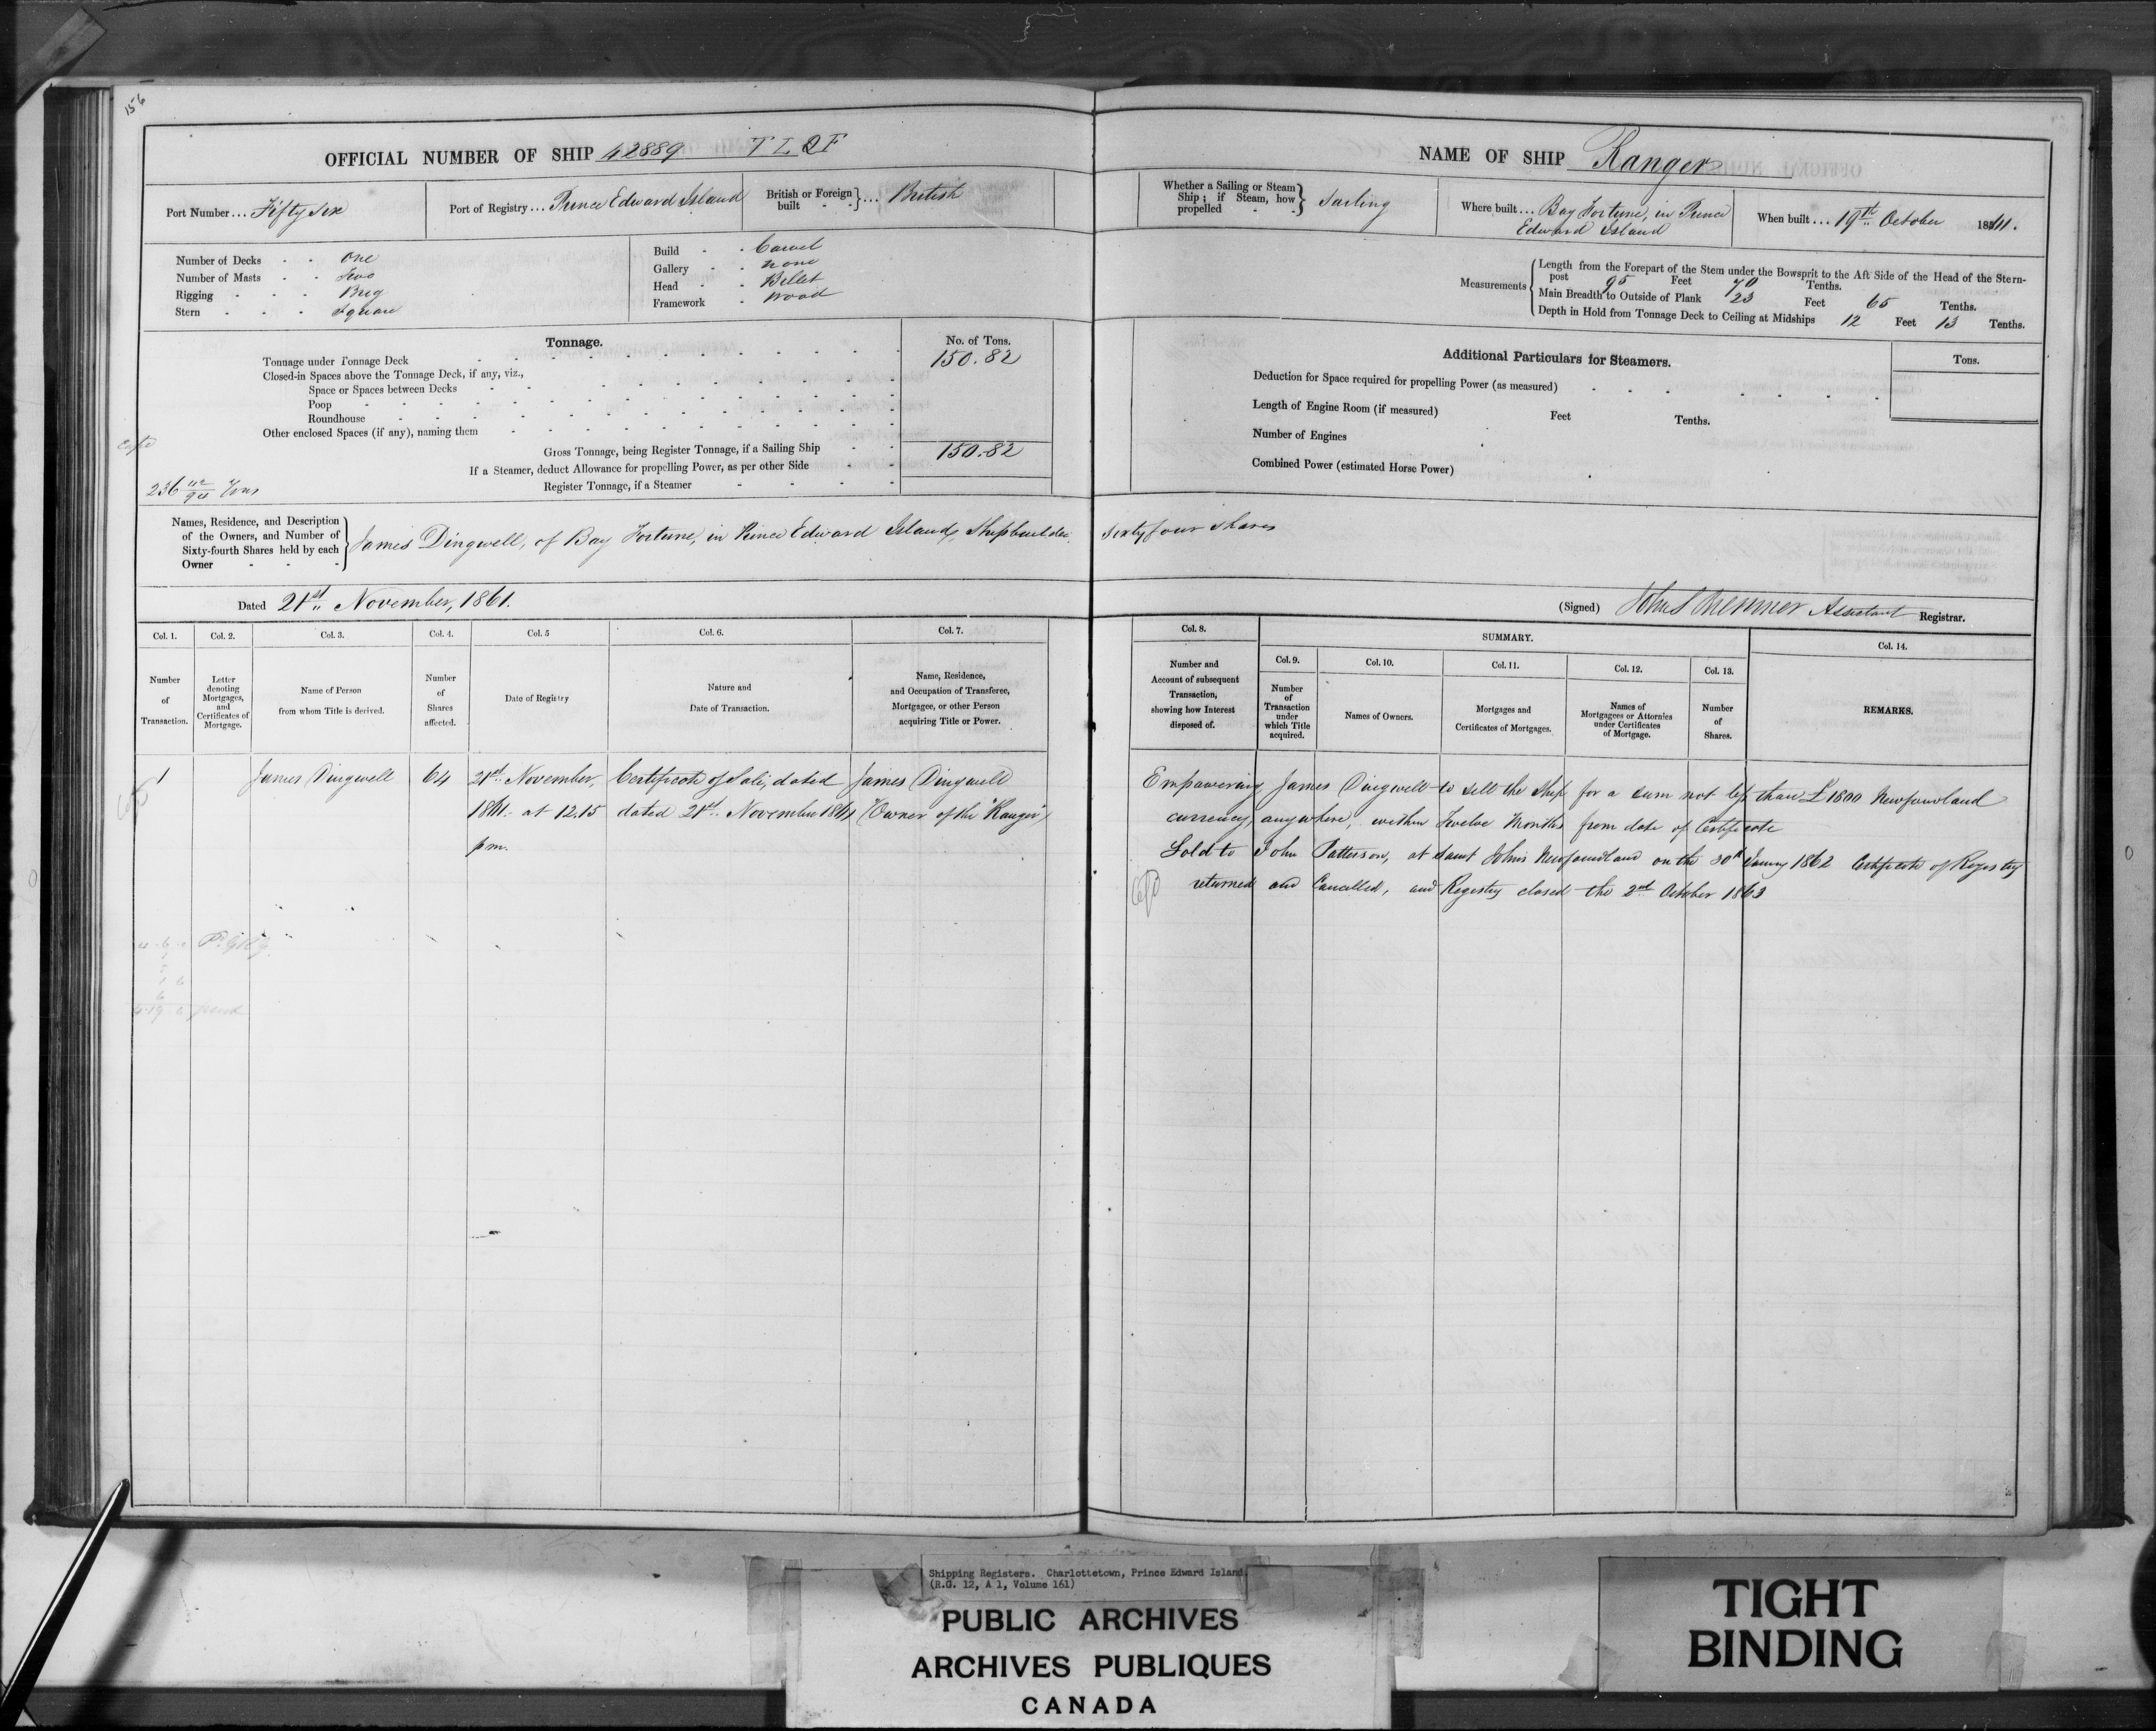 156
OFFICIAL NUMBER OF SHIP 42889 T L Q F
Port Number ... Fifty Six
Port of Registry ... Prince Edward Island
British or Foreign built } ... British
Number of Decks - - One
Number of Masts - - Two
Rigging - - - Brig
Stern - - - Square
Build - - Carvel
Gallery - - None
Head - - Billet
Framework - Wood
Tonnage.
No. of Tons.
Tonnage under Tonnage Deck 150.82
Closed-in Spaces above the Tonnage Deck, if any, viz.,
Space or Spaces between Decks
Poop
Roundhouse
Other enclosed Spaces (if any), naming them
Gross Tonnage, being Register Tonnage, if a Sailing Ship 150.82
If a Steamer, deduct Allowance for propelling Power, as per other Side
Register Tonnage, if a Steamer
236 42/94 Tons
NAME OF SHIP Ranger
Whether a Sailing or Steam Ship; if Steam, how propelled } Sailing
Where built ... Bay Fortune, in Prince
Edward Island
When built ... 19th October 1861.
Measurements
Length from the Forepart of the Stem under the Bowsprit to the Aft Side of the Head of the Stern-
post 95 Feet 70 Tenths.
Main Breadth to Outside of Plank 23 Feet 65 Tenths.
Depth in Hold from Tonnage Deck to Ceiling at Midships 12 Feet 13 Tenths.
Additional Particulars for Steamers.
Tons.
Deduction for Space required for propelling Power (as measured)
Length of Engine Room (if measured) Feet Tenths.
Number of Engines
Combined Power (estimated Horse Power)
Names, Residence, and Description
of the Owners, and Number of
Sixty-fourth Shares held by each
Owner
James Dingwell, of Bay Fortune, in Prince Edward Island, Shipbuilder. Sixty four Shares
Dated 21st November, 1861.
(Signed) Assistant Registrar.
Col. 1. Col. 2. Col. 3. Col. 4. Col. 5 Col. 6. Col. 7.
Number of Transaction.
Letter denoting Mortgages, and Certificates of Mortgage.
Name of Person from whom Title is derived.
Number of Shares affected.
Date of Registry
Nature and Date of Transaction.
Name, Residence, and Occupation of Transferee, Mortgagee, or other Person acquiring Title or Power.
Col. 8.
Number and Account of subsequent Transaction, showing how Interest disposed of.
SUMMARY.
Col. 9. Col. 10. Col. 11. Col. 12. Col. 13.
Number of Transaction under which Title acquired.
Names of Owners.
Mortgages and Certificates of Mortgages.
Names of Mortgagees or Attornies under Certificates of Mortgage.
Number of Shares.
Col. 14.
REMARKS.
1 James Dingwell 64 21st November, Certificate of Sale, dated James Dingwell
1861. at 12.15 dated 21st November 1861 (Owner of the "Ranger")
p m.
Empowering James Dingwell to sell the Ship for a sum not less than £1800 Newfoundland
currency, anywhere, within Twelve Months from date of Certificate
Sold to John Patterson, at Saint Johns Newfoundland on the 30th January 1862 Certificate of Registry
returned and Cancelled, and Registry closed the 2nd October 1863
Shipping Registers. Charlottetown, Prince Edward Island.
(R.G. 12, A 1, Volume 161)
PUBLIC ARCHIVES
ARCHIVES PUBLIQUES
CANADA
TIGHT
BINDING